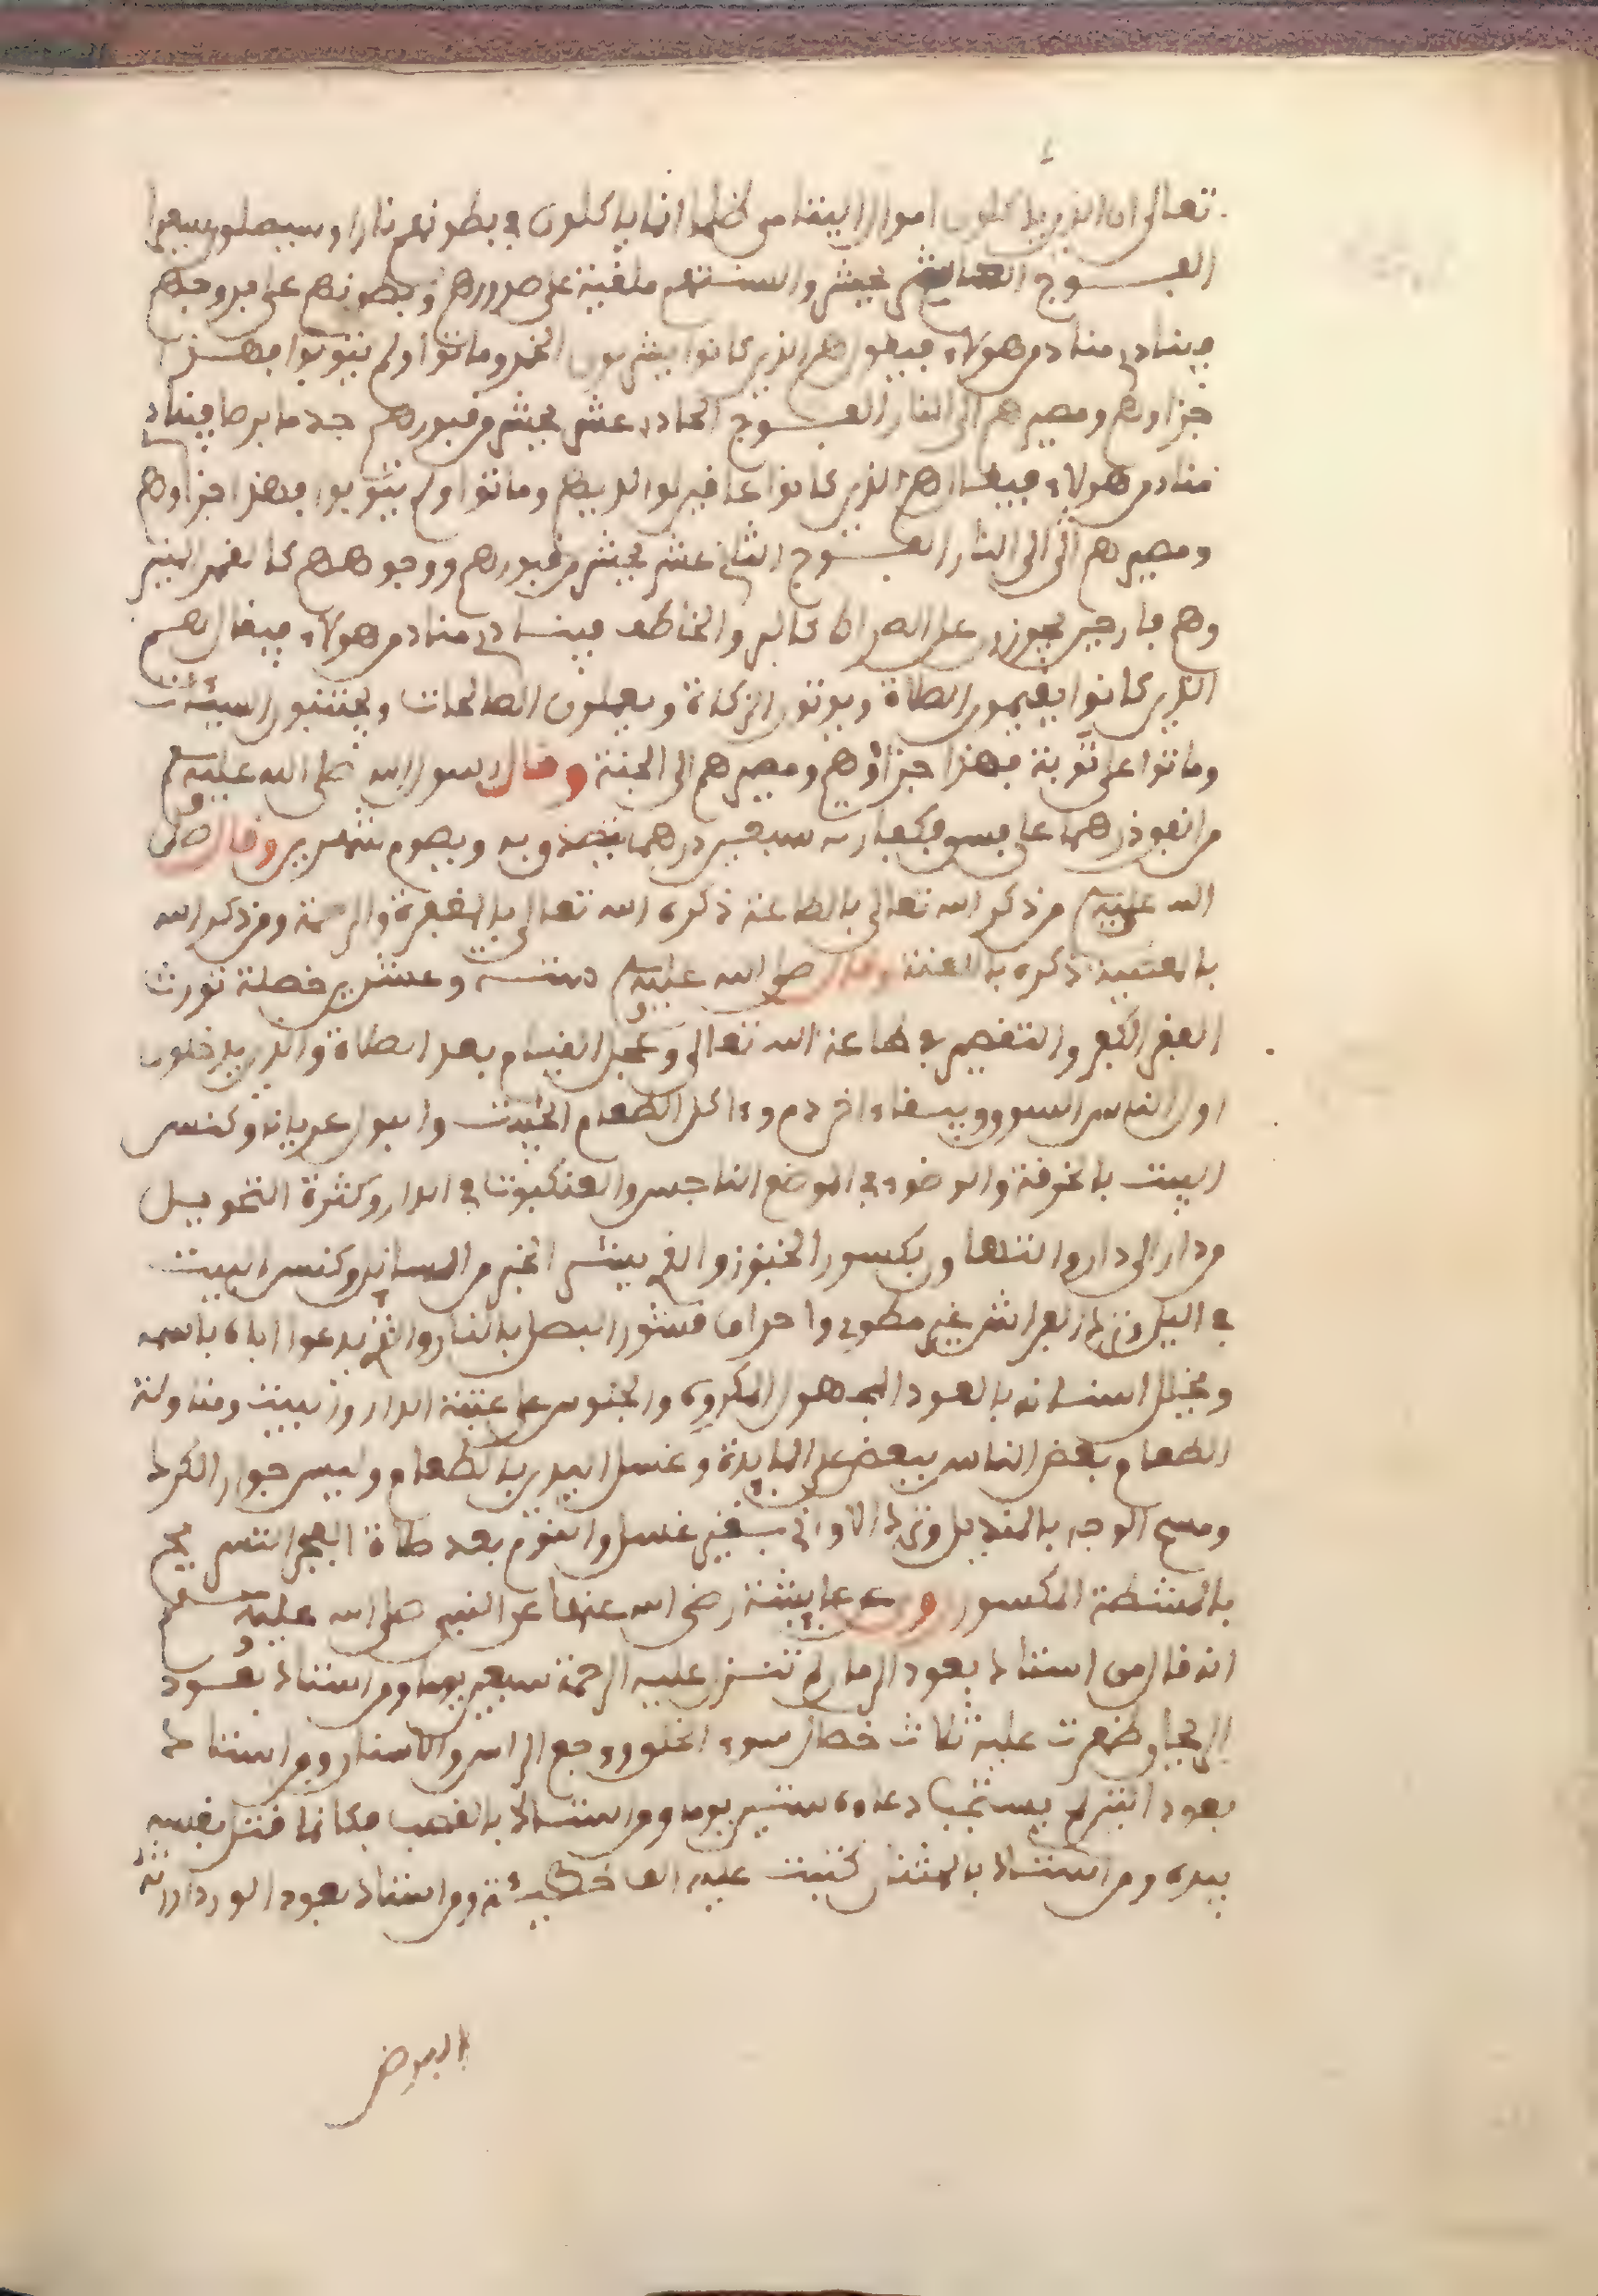 تعالى ان الذين ياكلون اموال اليتامى ظلما انما ياكلون في بطونهم نارا وسيصلون سعيرا
الفوج العاشر يحشر والسنتهم ملقية على صدورهم وبطونهم على فروجهم
فينادى مناد من هولاء فيقول هم الذين كانوا يشربون الخمر وماتوا ولم يتوبوا فهذا
جزاوهم ومصيرهم الى النار الفوج الحادى عشر يحشر من قبورهم جدما برصا فيناد
مناد من هولاء فيقال هم الذين كانوا عاقين لوالديهم وماتوا ولم يتوبوا فهذا جزاوهم
ومصيرهم الى الى النار الفوج الثاني عشر يحشر من قبورهم ووجوههم كالقمر المنير
وهم فارحين يجوزون على الصراط كالبرق الخاطف فينادى مناد من هولاء فيقال هم
الذين كانوا يقيمون الصلاة ويوتون الزكاة ويعملون الصالحات ويجتنبون السيئات
وماتوا على توبة فهذا جزاؤهم ومصيرهم الى الجنة وقال رسول الله صلى الله عليه وسلم
من انفق درهما على فسق فكفارته سبعين درهما يتصدق به ويصوم شهرين وقال صلى
الله عليه وسلم من ذكر الله تعالى بالطاعة ذكره الله تعالى بالمغفرة والرحمة ومن ذكر الله
بالمعصية ذكره بالعنة وقال صلى الله عليه وسلم ستة وعشرين خصلة تورث
الفقر الكفر والتقصير في طاعة الله تعالى وعجل القيام بعد الصلاة والذين يدخلون
اول الناس السوق ويبقاء اخرهم واكل الطعام الخبث والبول عريانا وكنس
البيت بالخرقة والوضوء في الموضع الناجس والعنكبوت في الدار وكثرة التحويل
من دار الى دار والتهاون بكسور الخبز والذي يشترى الخبز من السائل وكنس البيت
في اليل وترك الفراش غير مطوي واحراق قشور البصل بالنار والذي يدعوا اباه باسمه
وتخيلل اسنانه بالعود المجهول المكروه والجلوس على عتبة الدار والبيت ومناولة
الطعام بعض الناس ببعض على المايدة وغسل اليدين بالطعام وليس جوار الكرا
ومسح الوجه بالمنديل وترك الاواني بغير غسل والنوم بعد صلاة الفجر التسريح
بالمشطة المكسور وعن عايشة رضى الله عنها عن النبي صلى الله عليه وسلم
انه قال من استاك بعود الرمان لم تنزل عليه الرحمة سبعين يوما ومن استاك بعود
الريحان ظهرت عليه ثلاث خصال سوء الخلق ووجع الراس والاسنان ومن استاك
بعود التين لم يستجب دعاوه ستين يوما ومن استاك بالقصب فكانما قتل نفسه
بيده ومن استاك بالحشيش كتبت عليه الف خطيئة ومن استاك بعود الورد اورثه
البرض